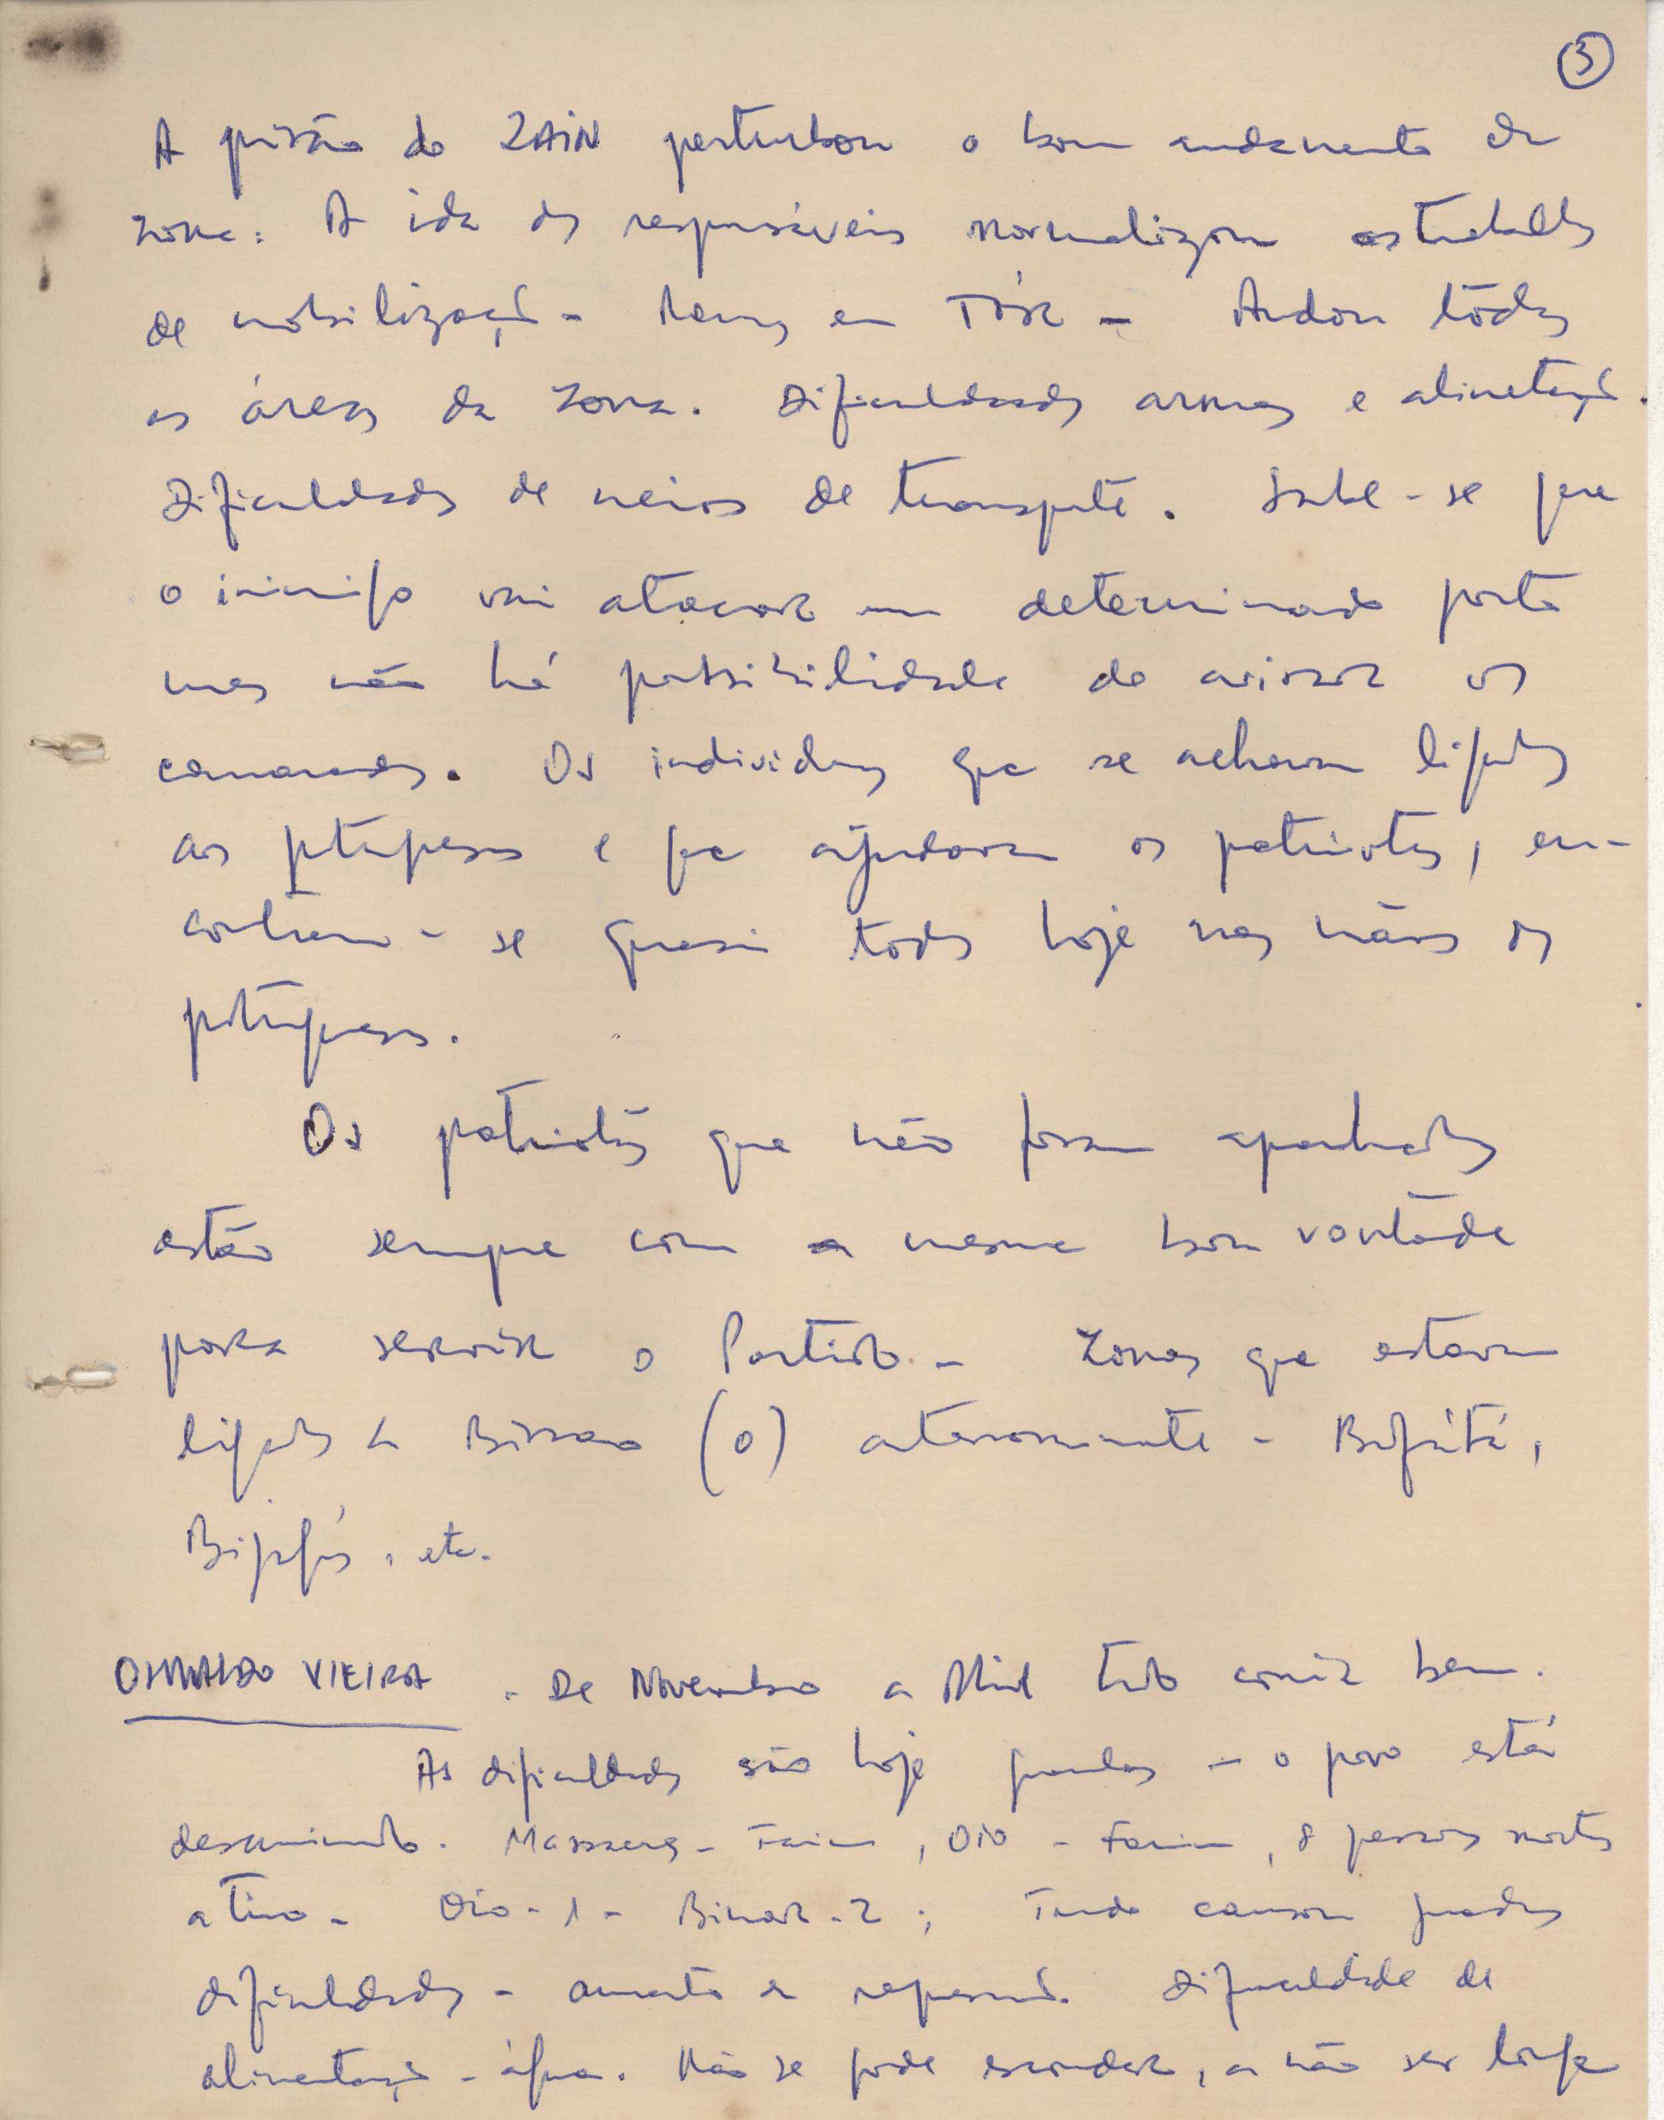 3
A prisão do ZAIN perturbou o bom andamento da
zona. A ida dos responsáveis normalizou os trabalhos
de mobilização - Armas em Tôr - Andou tôdas
as áreas da zona. Dificuldades armas e alimentação.
Dificuldades de meios de transporte. Sabe-se que
o inimigo vai atacar um determinado ponto
mas não há possibilidade de avisar os
camaradas. Os indivíduos que se achavam ligados
aos portugueses e que ajudavam os patriotas, en-
contram-se quasi todos hoje nas mãos dos
portugueses.
Os patriotas que não foram apanhados
estão sempre com a mesma boa vontade
para servir o Partido. - Zonas que estavam
ligadas a Bissau (0) anteriormente - Bafatá,
Bijagós, etc.
OSVALDO VIEIRA - De Novembro a Abril tudo corria bem.
As dificuldades são hoje grandes - o povo está
desanimado. Massacres - Farim, Oio - Farim, 8 pessoas mortas
a tiro - Oio - 1 - Binar - 2; Tudo causou grandes
dificuldades - aumento da repressão. Dificuldade de
alimentação - água. Não se pode esconder, a não ser longe